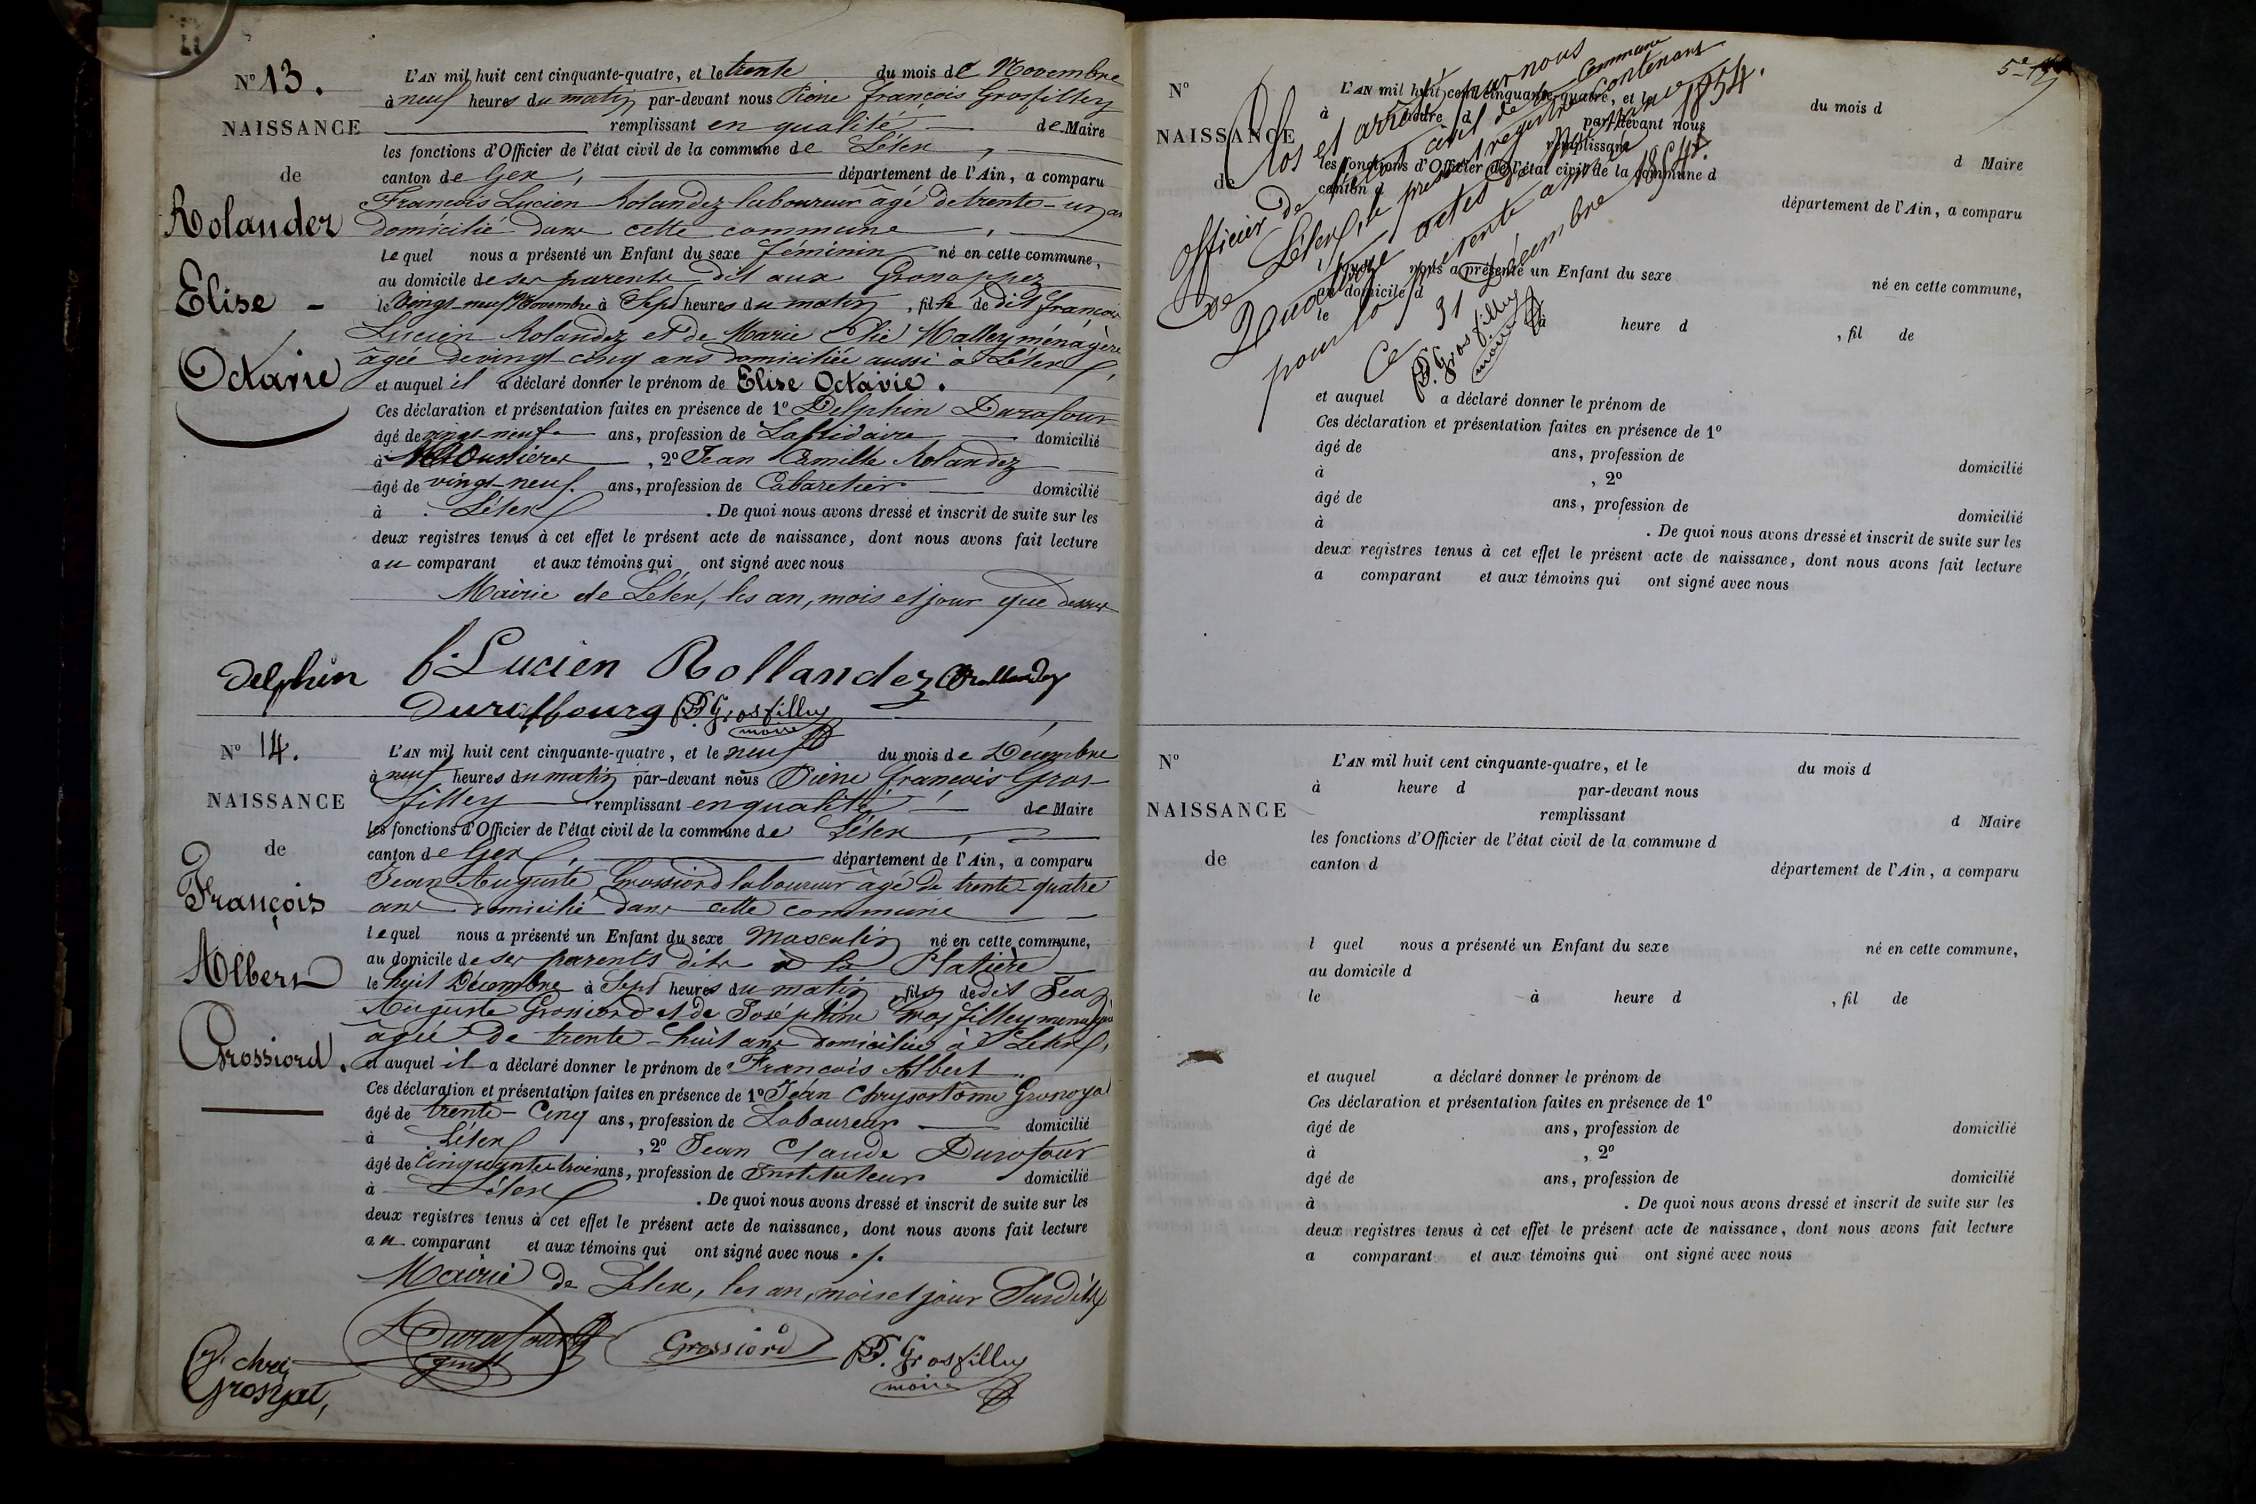 N° 13.
NAISSANCE
de
Rolandez
Elise -
Octavie
L'AN mil huit cent cinquante-quatre, et le trente du mois de Novembre
à neuf heures du matin par-devant nous Pierre François Grosfilley
remplissant en qualité de Maire
les fonctions d'Officier de l'état civil de la commune de Lélex,
canton de Gex, département de l'Ain, a comparu
François Lucien Rolandez laboureur âgé de trente-un an
domicilié dans cette commune,
lequel nous a présenté un Enfant du sexe féminin né en cette commune,
au domicile de ses parents dit aux
le Vingt-neuf Novembre à Sept heures du matin, fille de dit François
Lucien Rolandez et de Marie Mallley ménagère
âgée de vingt cinq ans domiciliée aussi à Lélex,
et auquel il a déclaré donner le prénom de Elise Octavie.
Ces déclaration et présentation faites en présence de 1° Delphin Durafour
âgé de vingt-neuf ans, profession de Lapidaire domicilié
à , 2° Jean Camille Rolandez
âgé de vingt-neuf. ans, profession de Cabaretier domicilié
à Lélex. De quoi nous avons dressé et inscrit de suite sur les
deux registres tenus à cet effet le présent acte de naissance, dont nous avons fait lecture
au comparant et aux témoins qui ont signé avec nous
Mairie de Lélex, les an, mois et jour que dessus
f. Lucien Rollandez Rollandez
Delphin
Duraffourg P.F. Grosfilley
maire
N° 14.
NAISSANCE
de
François
Albert
Grossiord.
L'AN mil huit cent cinquante-quatre, et le neuf du mois de Décembre
à neuf heures du matin par-devant nous Pierre François Gros-
filley remplissant en qualité de Maire
les fonctions d'Officier de l'état civil de la commune de Lélex,
canton de Gex, département de l'Ain, a comparu
Jean Auguste Grossiord laboureur âgé de trente-quatre
ans domicilié dans cette commune
lequel nous a présenté un Enfant du sexe Masculin né en cette commune,
au domicile de ses parents dits à la Platière
le huit Décembre à Sept heures du matin, fils de dit Jean
Auguste Grossiord et de Joséphine Grosfilley ménagère
âgée de trente-huit ans domiciliée à Lélex,
et auquel il a déclaré donner le prénom de François Albert
Ces déclaration et présentation faites en présence de 1° Jean Chrysostôme Grosgojat
âgé de trente-Cinq ans, profession de Laboureur domicilié
à Lélex, 2° Jean Claude Durafour
âgé de Cinquante trois ans, profession de Instituteur domicilié
à Lélex. De quoi nous avons dressé et inscrit de suite sur les
deux registres tenus à cet effet le présent acte de naissance, dont nous avons fait lecture
au comparant et aux témoins qui ont signé avec nous ./.
Mairie de Lélex, les an, mois et jour Susdits
Durafour Grossiord P.F. Grosfilley
maire
5e
N°
NAISSANCE
de
L'AN mil huit cent cinquante-quatre, et le du mois d
à heure d par-devant nous
remplissant d Maire
les fonctions d'Officier de l'état civil de la commune d
canton d département de l'Ain, a comparu
l quel nous a présenté un Enfant du sexe né en cette commune,
au domicile d
le à heure d , fil de
et auquel a déclaré donner le prénom de
Ces déclaration et présentation faites en présence de 1°
âgé de ans, profession de domicilié
à , 2°
âgé de ans, profession de domicilié
à . De quoi nous avons dressé et inscrit de suite sur les
deux registres tenus à cet effet le présent acte de naissance, dont nous avons fait lecture
a comparant et aux témoins qui ont signé avec nous
Clos et arrêté par nous
Officier de l'état civil de la Commune
de Lélex, le présent registre contenant
Quatorze actes de Naissance
pour l'année 1854.
Ce 31 Décembre 1854.
P.F. Grosfilley
maire
N°
NAISSANCE
de
L'AN mil huit cent cinquante-quatre, et le du mois d
à heure d par-devant nous
remplissant d Maire
les fonctions d'Officier de l'état civil de la commune d
canton d département de l'Ain, a comparu
l quel nous a présenté un Enfant du sexe né en cette commune,
au domicile d
le à heure d , fil de
et auquel a déclaré donner le prénom de
Ces déclaration et présentation faites en présence de 1°
âgé de ans, profession de domicilié
à , 2°
âgé de ans, profession de domicilié
à . De quoi nous avons dressé et inscrit de suite sur les
deux registres tenus à cet effet le présent acte de naissance, dont nous avons fait lecture
a comparant et aux témoins qui ont signé avec nous